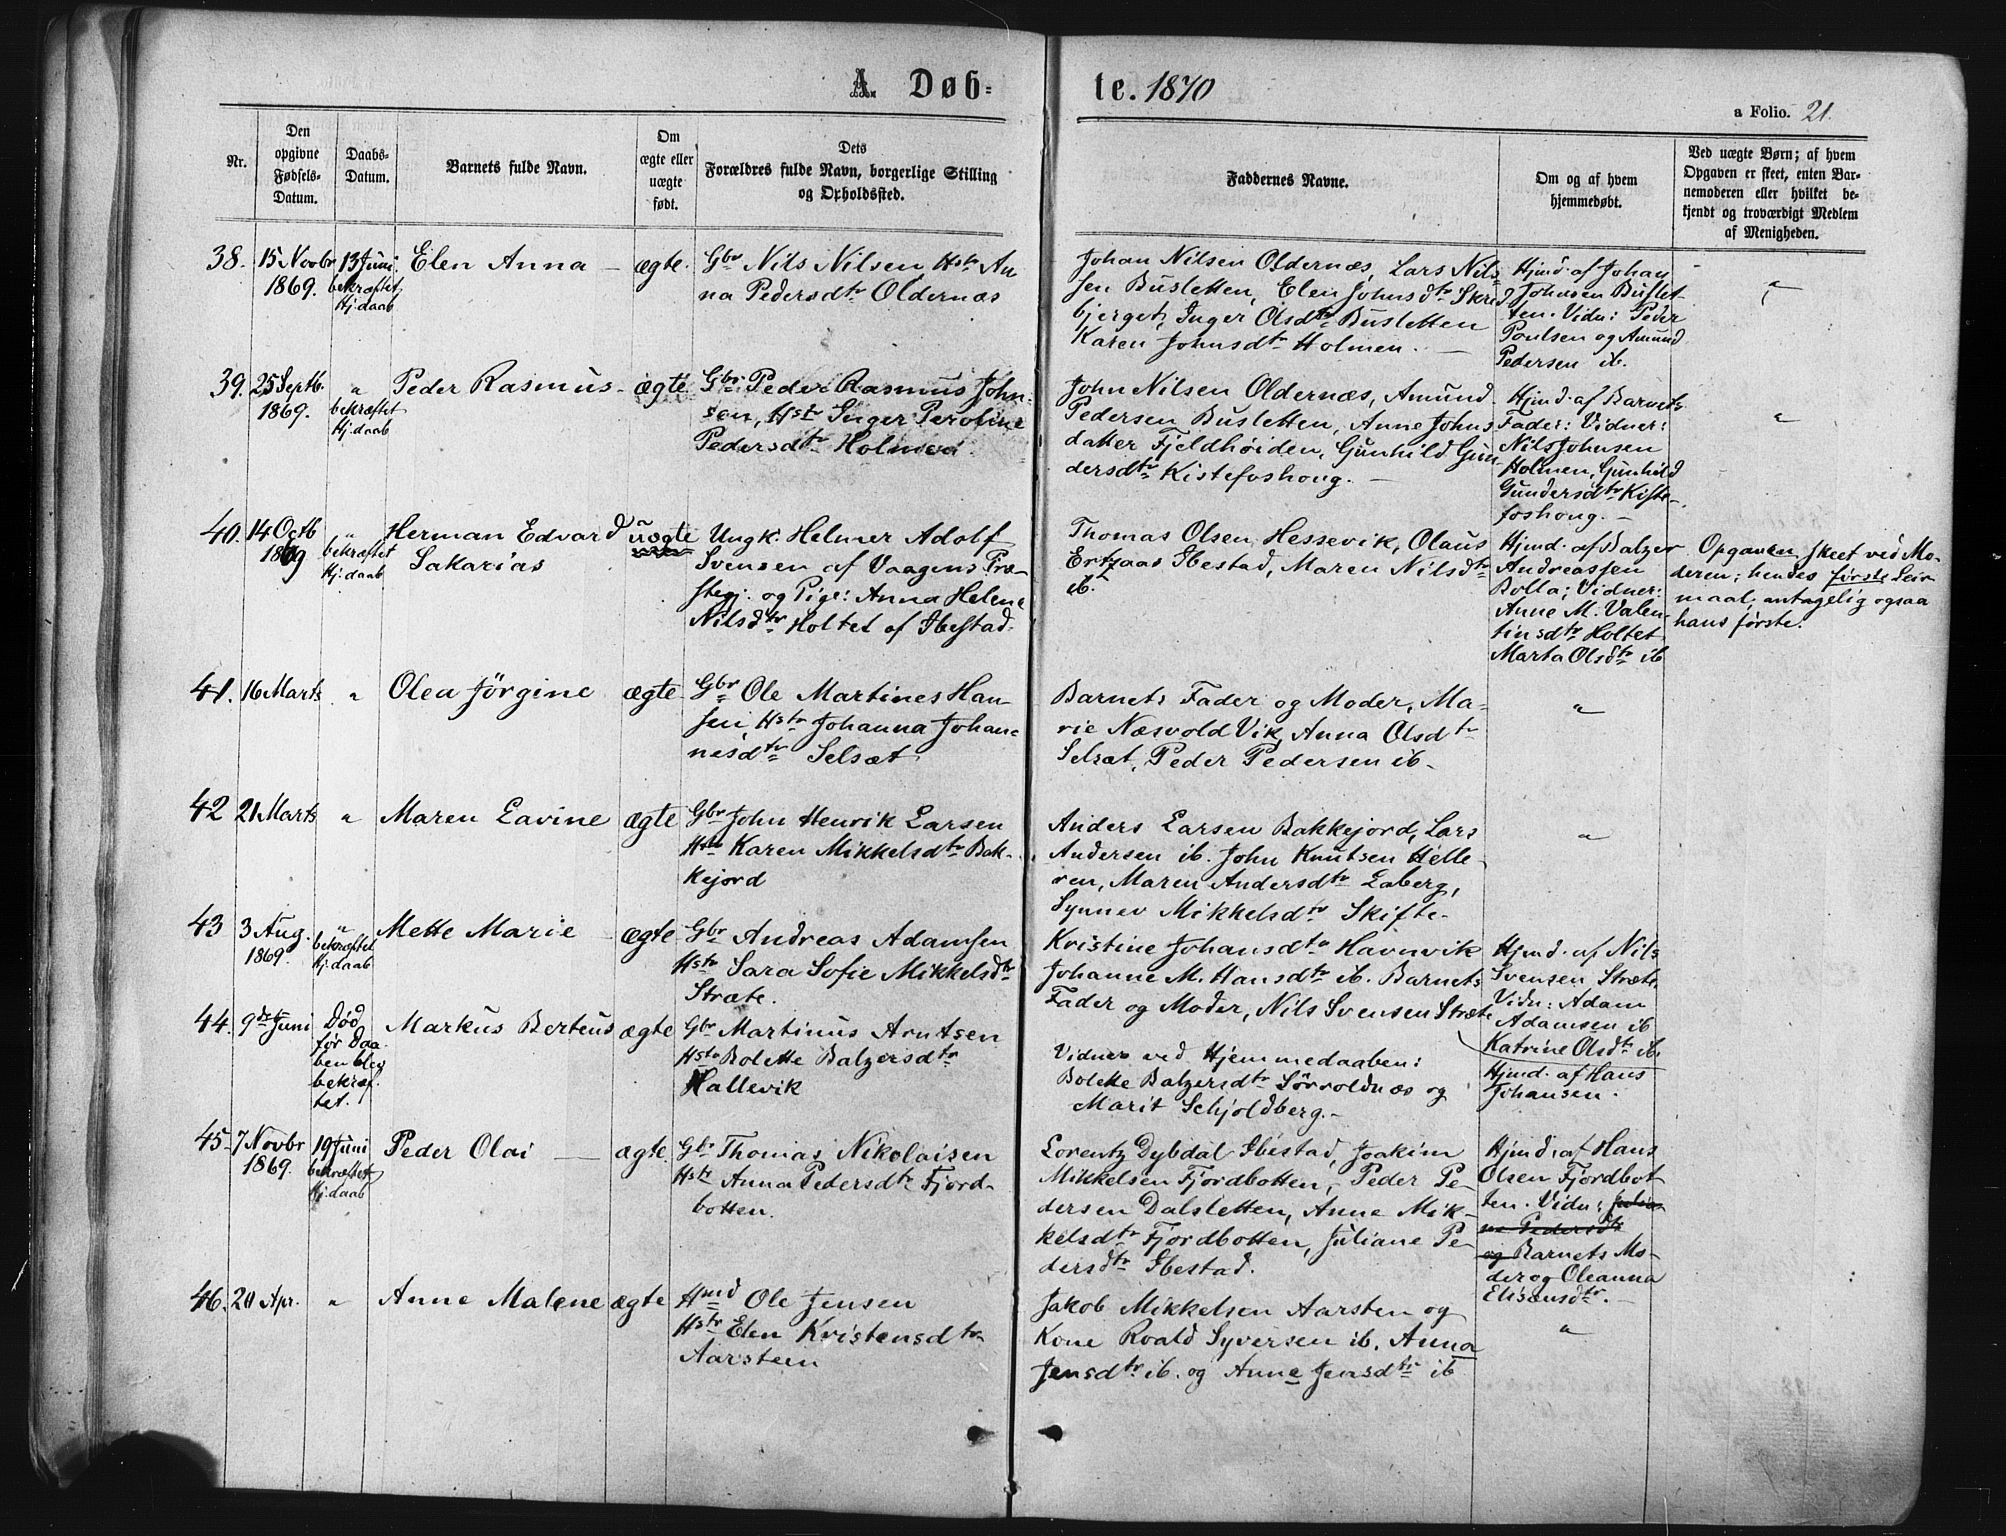 A. Døb-
te. 1870
a Folio. 21.
Nr.
Den opgivne Fødsels-Datum.
Daabs-Datum.
Barnets fulde Navn.
Om ægte eller uægte født.
Dets Forældres fulde Navn, borgerlige Stilling og Opholdssted.
Faddernes Navne.
Om og af hvem hjemmedøbt.
Ved uægte Børn; af hvem Opgaven er skeet, enten Barnemoderen eller hvilket bekjendt og troværdigt Medlem af Menigheden.
38.
15 Novbr
1869.
13 Juni
bekræftet
Hj.daab
Elen Anna
ægte.
Gbr Nils Nilsen, Hstr An-
na Pedersdtr Oldernæs
Johan Nilsen Oldernæs, Lars Nils-
sen Busletten, Elen Johnsdtr Skred
bjerget, Inger Olsdtr Busletten
Karen Johnsdtr Holmen.
Hjmd. af Johan
Johnsen Buslet-
ten. Vidn: Peder
Poulsen og Amund
Pedersen ib.
"
39.
25 Septb.
1869.
"
bekræftet
Hj.daab
Peder Rasmus
ægte
Gbr Peder Rasmus John-
sen, Hstr Inger Peroline
Pedersdtr Holmen
John Nilsen Oldernæs, Amund
Pedersen Busletten, Anne Johns
datter Fjeldhøiden, Gunhild Gun
dersdtr Kistefoshoug.
Hjmd. af Barnets
Fader: Vidner:
Nils Johnsen
Holmen, Gunhild
Gundersdtr Kiste-
foshoug.
"
40.
14 Octb
1869
"
bekræftet
Hj.daab
Herman Edvard
Sakarias
uægte
Ungk. Helmer Adolf
Svensen af Vaagens Præ-
stegj. og Pige: Anna Helene
Nilsdtr Holtet af Ibestad.
Thomas Olsen Hessevik, Olaus
Ertzaas Ibestad, Maren Nilsdtr
ib.
Hjmd. af Balzer
Andreassen
Bolla; Vidner:
Anne M. Valen-
tinsdtr Holtet
Marta Olsdtr ib
Opgaven skeet ved Mo-
deren; hendes første Leir-
maal, antagelig ogsaa
hans første.
41.
16 Marts
"
Olea Jørgine
ægte
Gbr Ole Martines Han-
sen, Hstr Johanna Johan-
nesdtr Selsæt
Barnets Fader og Moder, Ma-
rie Næsvold Vik, Anna Olsdtr
Selsæt, Peder Pedersen ib.
"
42
21 Marts
"
Maren Lavine
ægte
Gbr John Henrik Larsen
Hstr Karen Mikkelsdtr Bak-
kejord
Anders Larsen Bakkejord, Lars
Andersen ib. John Knutsen Helle-
ren, Maren Andersdtr Laberg,
Synnev Mikkelsdtr Skifte.
"
43
3 Aug.
1869.
"
bekræftet
Hj.daab
Mette Marie
ægte
Gbr Andreas Adamsen
Hstr Sara Sofie Mikkelsdtr
Stræte.
Kristine Johansdtr Havnvik
Johanne M. Hansdtr ib. Barnets
Fader og Moder, Nils Svensen Stræte
Hjmd. af Nils
Svensen Stræte
Vidn: Adam
Adamsen ib
Katrine Olsdtr ib.
44.
9de Juni
Død
før Daa-
ben blev
bekræf-
tet.
Markus Berteus
ægte
Gbr Martinus Arntsen
Hstr Bolette Balzersdtr
Hallevik
Vidner ved Hjemmedaaben:
Bolette Balzersdtr Sørvoldnæs og
Marit Schjoldberg.
Hjmd. af Hans
Johansen.
45.
7 Novbr
1869.
19 Juni
bekræftet
Hj.daab
Peder Olai
ægte.
Gbr Thomas Nikolaisen
Hstr Anna Pedersdtr Fjord-
botten.
Lorentz Dybdal Ibestad, Joakim
Mikkelsen Fjordbotten, Peder Pe-
dersen Dalsletten, Anne Mik-
kelsdtr Fjordbotten, Juliane Pe-
dersdtr Ibestad.
Hjmd. af Hans
Olsen Fjordbot-
ten. Vidn: Julia-
ne Pedersdtr
og Barnets Mo-
der og Oleanna
Elisæusdtr.
46.
20 Apr.
"
Anne Malene
ægte
Hmd Ole Jensen
Hstr Elen Kristensdtr
Aarsteen
Jakob Mikkelsen Aarsten og
Kone Roald Syversen ib. Anna
Jensdtr ib. og Anne Jensdtr ib
"